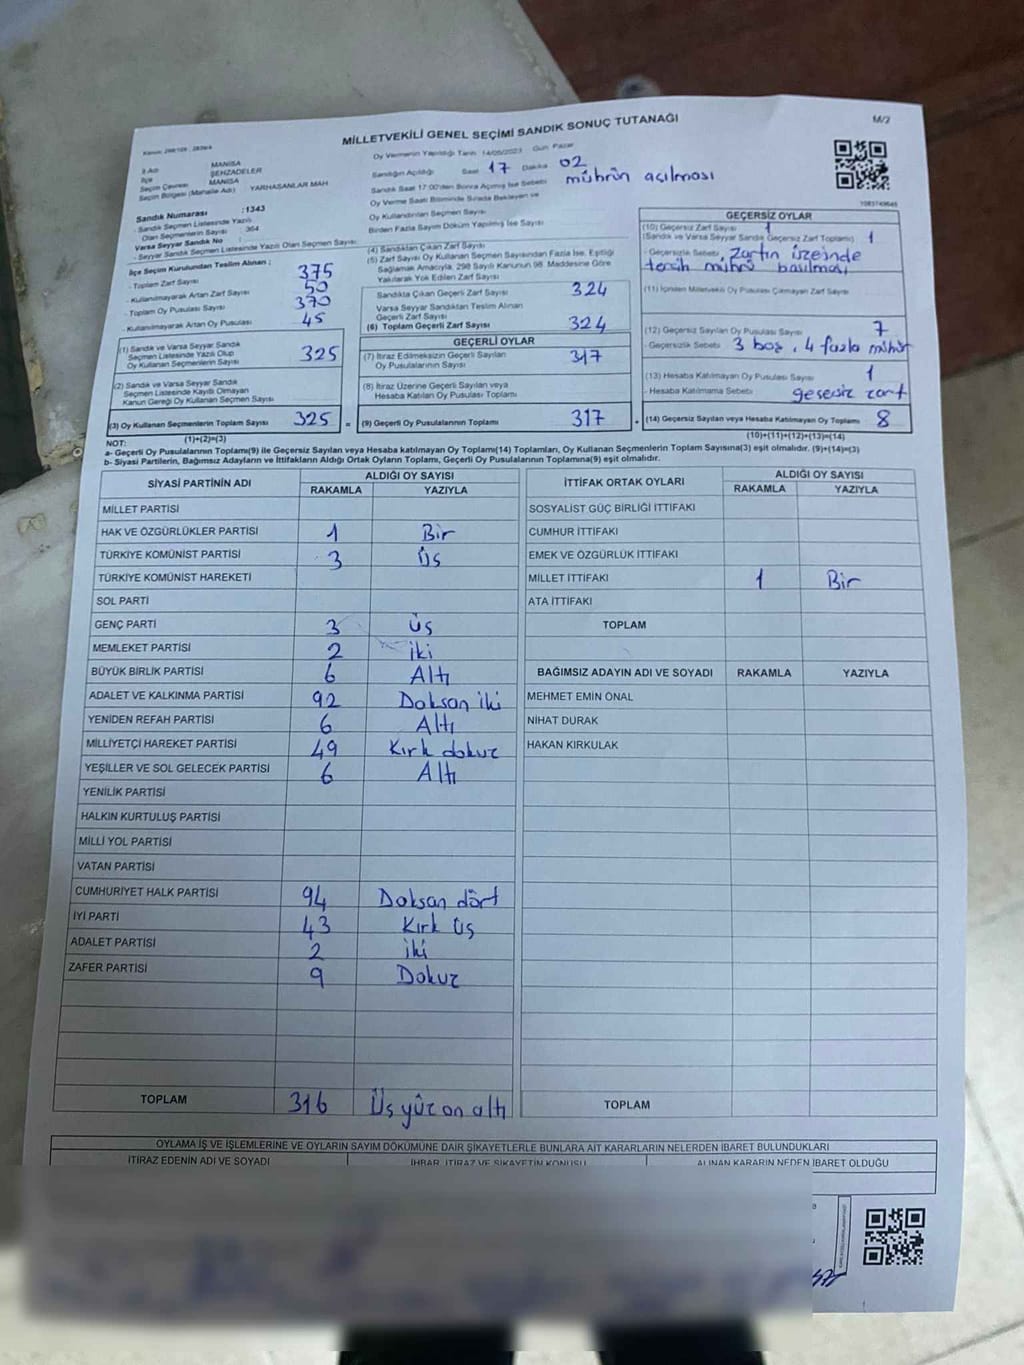 MİLLETVEKİLİ GENEL SEÇİMİ SANDIK SONUÇ TUTANAĞI
M/2
Oy Vermenin Yapıldığı Tarih 14/05/2023 Gün Pazar
İl Adı MANİSA
İlçe ŞEHZADELER
Seçim Çevresi MANİSA
Seçim Bölgesi (Mahalle Adı) YARHASANLAR MAH
Sandık Numarası :1343
- Sandık Seçmen Listesinde Yazılı
Olan Seçmenlerin Sayısı : 364
Varsa Seyyar Sandık No :
- Seyyar Sandık Seçmen Listesinde Yazılı Olan Seçmen Sayısı
Sandığın Açıldığı Saat 17 Dakika 02
Sandık Saat 17:00'den Sonra Açılmış İse Sebebi mührün açılması
Oy Verme Saati Bitiminde Sırada Bekleyen ve
Oy Kullandırılan Seçmen Sayısı
Birden Fazla Sayım Döküm Yapılmış İse Sayısı
İlçe Seçim Kurulundan Teslim Alınan :
- Toplam Zarf Sayısı 375
- Kullanılmayarak Artan Zarf Sayısı 50
- Toplam Oy Pusulası Sayısı 370
- Kullanılmayarak Artan Oy Pusulası 45
(1) Sandık ve Varsa Seyyar Sandık
Seçmen Listesinde Yazılı Olup
Oy Kullanan Seçmenlerin Sayısı 325
(2) Sandık ve Varsa Seyyar Sandık
Seçmen Listesinde Kayıtlı Olmayan
Kanun Gereği Oy Kullanan Seçmenlerin Sayısı
(3) Oy Kullanan Seçmenlerin Toplam Sayısı 325 =
(1)+(2)=(3)
(4) Sandıktan Çıkan Zarf Sayısı
(5) Zarf Sayısı Oy Kullanan Seçmen Sayısından Fazla İse, Eşitliği
Sağlamak Amacıyla, 298 Sayılı Kanunun 98. Maddesine Göre
Yakılarak Yok Edilen Zarf Sayısı
Sandıkta Çıkan Geçerli Zarf Sayısı 324
Varsa Seyyar Sandıktan Teslim Alınan
Geçerli Zarf Sayısı
(6) Toplam Geçerli Zarf Sayısı 324
GEÇERLİ OYLAR
(7) İtiraz Edilmeksizin Geçerli Sayılan
Oy Pusulalarının Sayısı 317
(8) İtiraz Üzerine Geçerli Sayılan veya
Hesaba Katılan Oy Pusulası Toplamı
(9) Geçerli Oy Pusulalarının Toplamı 317 +
GEÇERSİZ OYLAR
(10) Geçersiz Zarf Sayısı 1
(Sandık ve Varsa Seyyar Sandık Geçersiz Zarf Toplamı) 1
- Geçersizlik Sebebi, Zarfın üzeinde
tercih mührü basılması
(11) İçinden Milletvekili Oy Pusulası Çıkmayan Zarf Sayısı
(12) Geçersiz Sayılan Oy Pusulası Sayısı 7
- Geçersizlik Sebebi 3 boş, 4 fazla mühür
(13) Hesaba Katılmayan Oy Pusulası Sayısı 1
- Hesaba Katılmama Sebebi geçersiz zarf
(14) Geçersiz Sayılan veya Hesaba Katılmayan Oy Toplamı 8
(10)+(11)+(12)+(13)=(14)
NOT:
a- Geçerli Oy Pusulalarının Toplamı(9) ile Geçersiz Sayılan veya Hesaba katılmayan Oy Toplamı(14) Toplamları, Oy Kullanan Seçmenlerin Toplam Sayısına(3) eşit olmalıdır. (9)+(14)=(3)
b- Siyasi Partilerin, Bağımsız Adayların ve İttifakların Aldığı Ortak Oyların Toplamı, Geçerli Oy Pusulalarının Toplamına(9) eşit olmalıdır.
SİYASİ PARTİNİN ADI ALDIĞI OY SAYISI
RAKAMLA YAZIYLA
MİLLET PARTİSİ
HAK VE ÖZGÜRLÜKLER PARTİSİ 1 Bir
TÜRKİYE KOMÜNİST PARTİSİ 3 Üç
TÜRKİYE KOMÜNİST HAREKETİ
SOL PARTİ
GENÇ PARTİ 3 üç
MEMLEKET PARTİSİ 2 iki
BÜYÜK BİRLİK PARTİSİ 6 Altı
ADALET VE KALKINMA PARTİSİ 92 Doksan iki
YENİDEN REFAH PARTİSİ 6 Altı
MİLLİYETÇİ HAREKET PARTİSİ 49 Kırk dokuz
YEŞİLLER VE SOL GELECEK PARTİSİ 6 Altı
YENİLİK PARTİSİ
HALKIN KURTULUŞ PARTİSİ
MİLLİ YOL PARTİSİ
VATAN PARTİSİ
CUMHURİYET HALK PARTİSİ 94 Doksan dört
İYİ PARTİ 43 Kırk üç
ADALET PARTİSİ 2 iki
ZAFER PARTİSİ 9 Dokuz
TOPLAM 316 Üç yüz on altı
İTTİFAK ORTAK OYLARI ALDIĞI OY SAYISI
RAKAMLA YAZIYLA
SOSYALİST GÜÇ BİRLİĞİ İTTİFAKI
CUMHUR İTTİFAKI
EMEK VE ÖZGÜRLÜK İTTİFAKI
MİLLET İTTİFAKI 1 Bir
ATA İTTİFAKI
TOPLAM
BAĞIMSIZ ADAYIN ADI VE SOYADI RAKAMLA YAZIYLA
MEHMET EMİN ÖNAL
NİHAT DURAK
HAKAN KIRKULAK
TOPLAM
OYLAMA İŞ VE İŞLEMLERİNE VE OYLARIN SAYIM DÖKÜMÜNE DAİR ŞİKAYETLERLE BUNLARA AİT KARARLARIN NELERDEN İBARET BULUNDUKLARI
İTİRAZ EDENİN ADI VE SOYADI İHBAR, İTİRAZ VE ŞİKAYETİN KONUSU ALINAN KARARIN NEDEN İBARET OLDUĞU